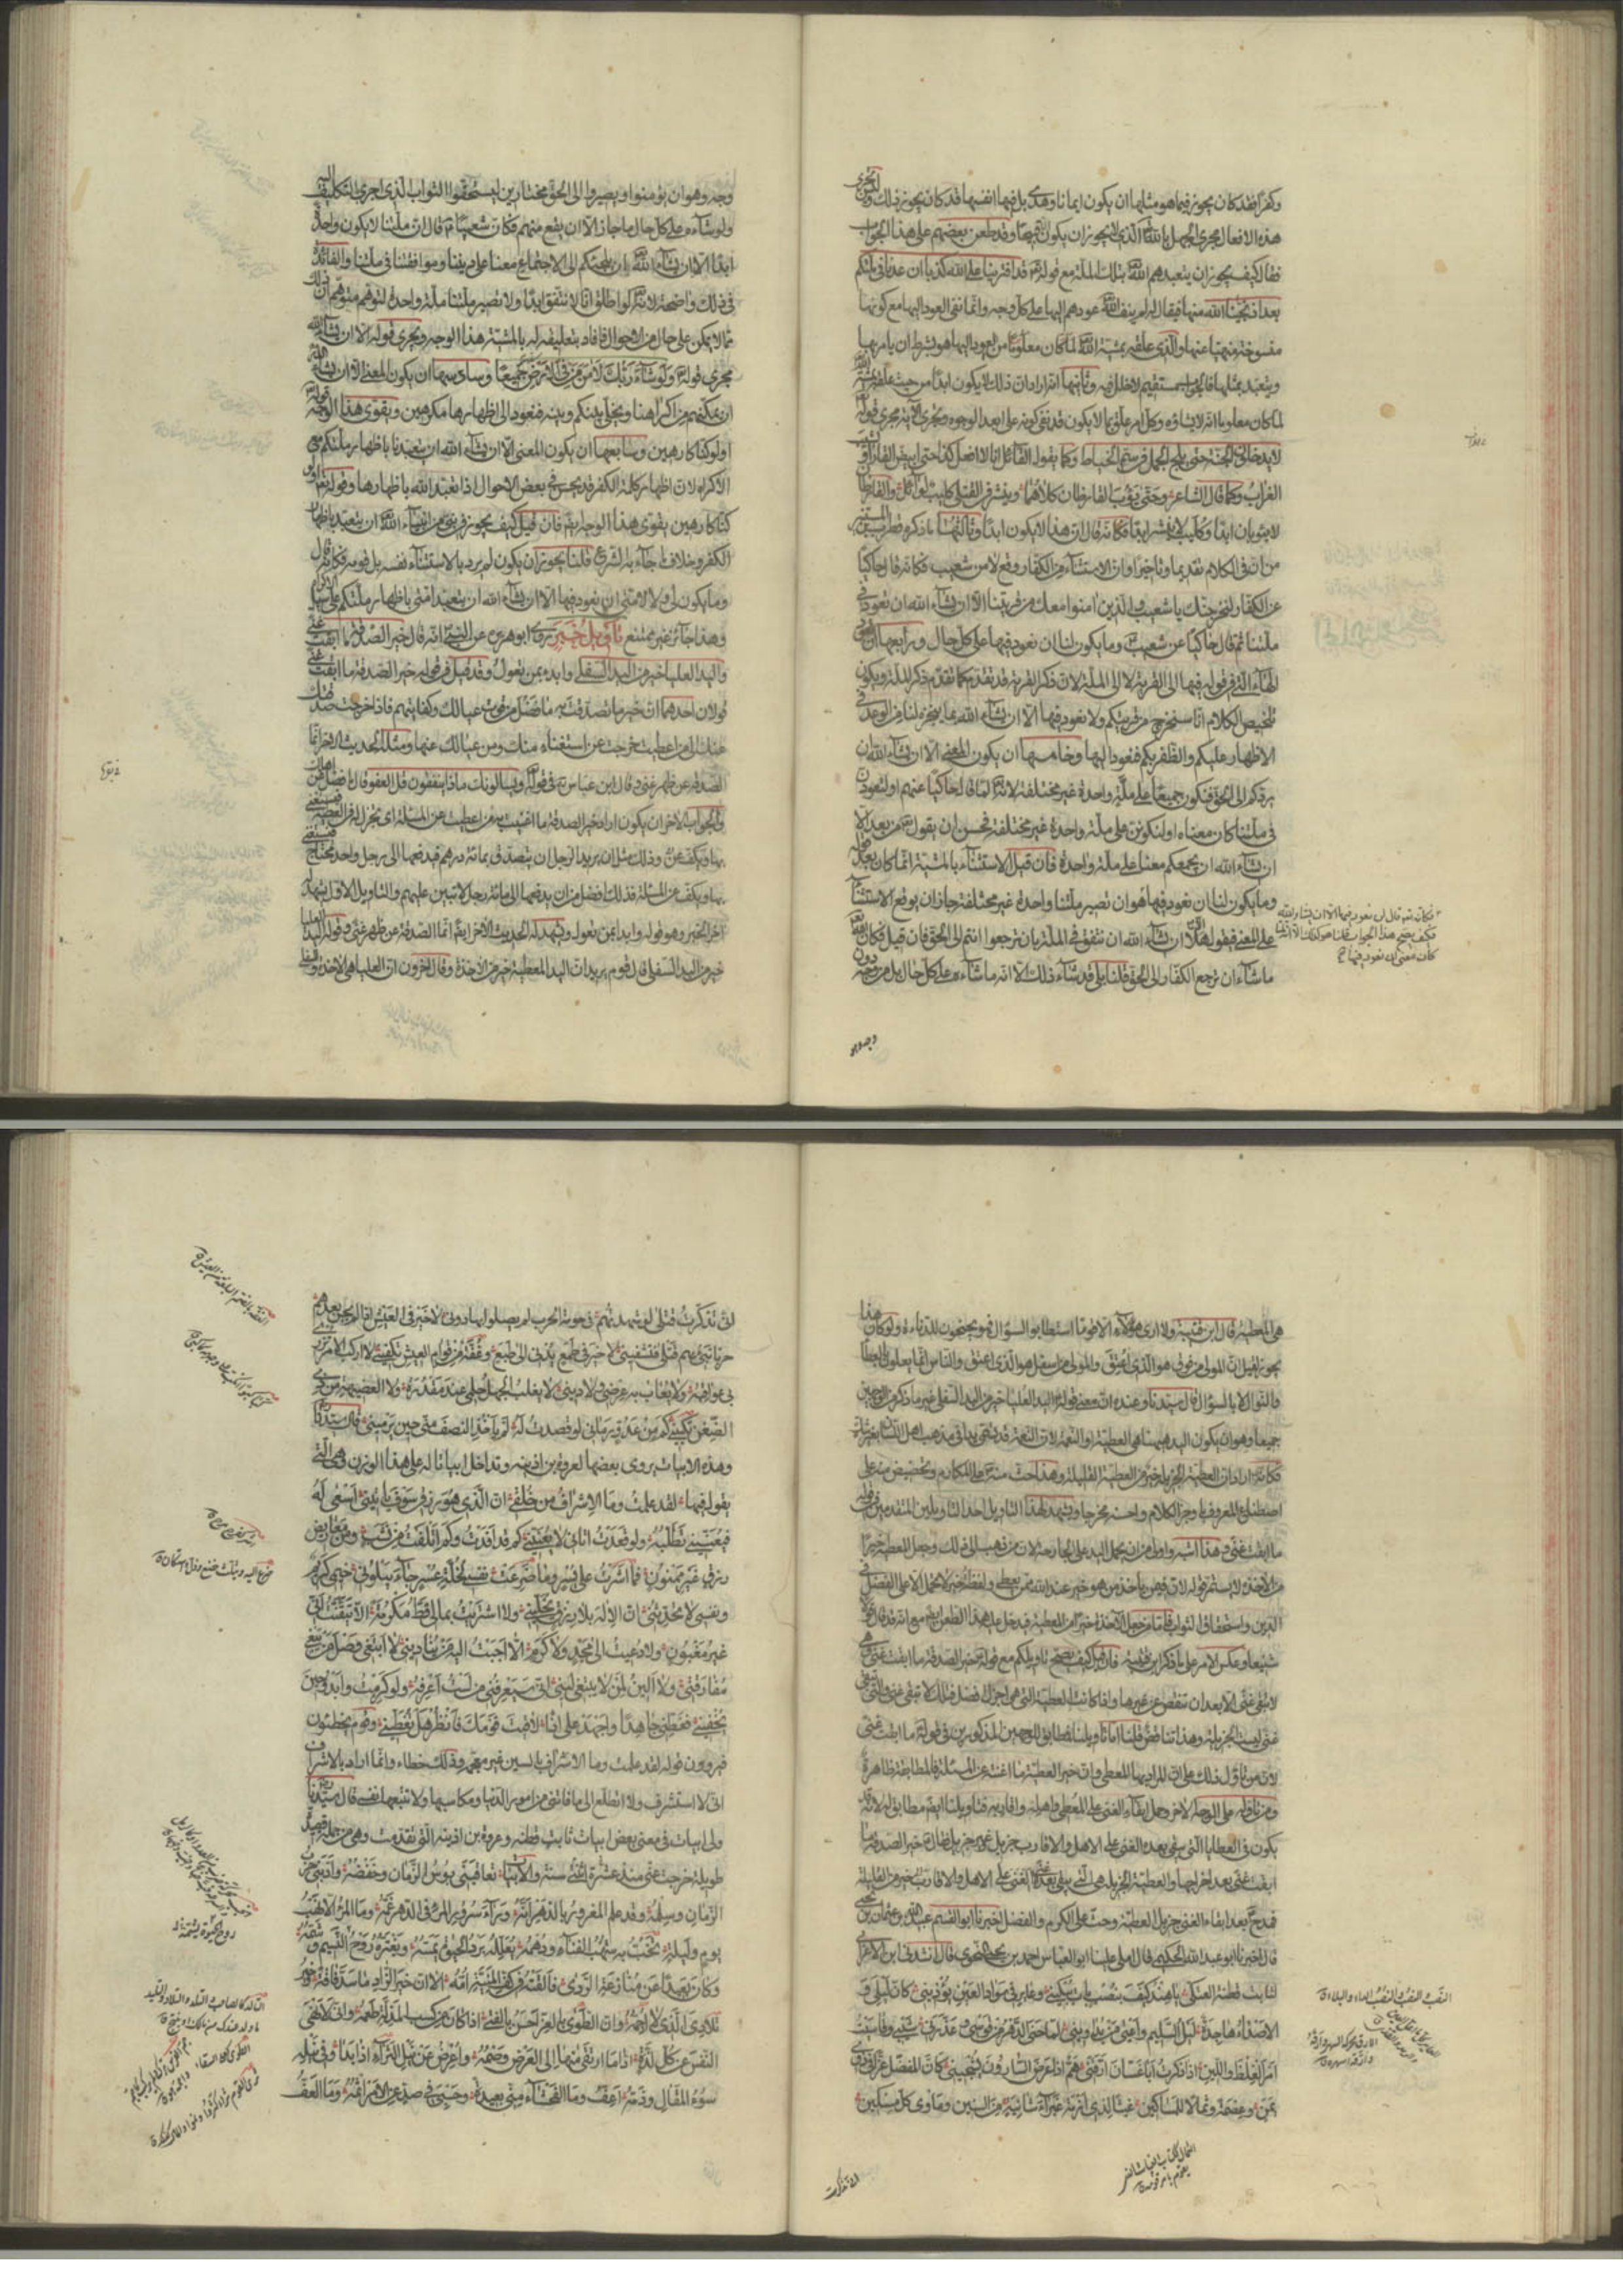 وكفرا فقد كان يجوز فيما هو مثلها ان يكون ايمانا وهدى بل فيها انفسها قد كان يجوز ذلك وليس تجرى
هذه الافعال مجرى الجهل بالله تعالى الذى لا يجوز ان يكون الا قبيحا وقد طعن بعضهم على هذا الجواب
فقال كيف يجوز ان يتعبدهم الله تعالى بتلك الملة مع قوله تعالى قد افترينا على الله كذبا ان عدنا فى ملتكم
بعد اذ نجينا الله منها فيقال له لم ينف الله تعالى عودهم اليها على كل وجه وانما نفى العود اليها مع كونها
منسوخة منهيا عنها والذى علقه بمشية الله تعالى لما كان معلوما من العود اليها هو بشرط ان يامر بها
ويتعبد بمثلها فالجواب مستقيم لا خلل فيه وثانيها انه اراد ان ذلك لا يكون ابدا من حيث علقه بمشية الله
لما كان معلوما انه لا يشاؤه وكل امر علق بما لا يكون فقد نفى كونه على ابعد الوجوه وتجرى الآية مجرى قوله
لا يدخلون الجنة حتى يلج الجمل فى سم الخياط وكما يقول القائل انا لا افعل كذا حتى يبيض القار او يشيب
الغراب وكما قال الشاعر وحتى يؤوب القارظان كلاهما وينشر فى القتلى كليب لوائل والقارظان
لا يؤوبان ابدا وكليب لا ينشر ابدا فكانه قال ان هذا لا يكون ابدا وثالثها ما ذكره قطرب بن المستنير
من ان فى الكلام تقديما وتاخيرا وان الاستثناء من الكفار وقع لا من شعيب فكانه قال حاكيا
عن الكفار لنخرجنك يا شعيب والذين امنوا معك من قريتنا الا ان يشاء الله ان تعودن فى
ملتنا ثم قال حاكيا عن شعيب وما يكون لنا ان نعود فيها على كل حال ورابعها ان تعود
الهاء التى فى قوله فيها الى القرية لا الى الملة لان ذكر القرية قد تقدم كما تقدم ذكر الملة ويكون
تلخيص الكلام انا سنخرج من قريتكم ولا نعود فيها الا ان يشاء الله بما ينجزه لنا من الوعد فى
الاظهار عليكم والظفر بكم فنعود اليها وخامسها ان يكون المعنى الا ان يشاء الله ان
يردكم الى الحق فنكون جميعا على ملة واحدة غير مختلفة لانه لما قال حاكيا عنهم او لتعودن
فى ملتنا كان معناه او لنكونن على ملة واحدة غير مختلفة فحسن ان يقول من بعد الا
ان يشاء الله ان يجمعكم معنا على ملة واحدة فان قيل الاستثناء بالمشية انما كان بعد قوله
وما يكون لنا ان نعود فيها
هو ان تصير ملتنا واحدة غير مختلفة جاز ان يوقع الاستثناء
على المعنى فيقول الا ان يشاء الله ان نتفق فى الملة بان ترجعوا انتم الى الحق فان قيل فكان الله
ما شاء ان ترجع الكفار الى الحق قلنا بلى قد شاء ذلك الا انه ما شاءه على كل حال بل من وجه دون
وجه وهو
فكانه تعالى قال لن نعود فيها الا ان يشاء الله
فكيف يصح هذا الجواب قلنا هو كذلك الا انه لما
كان معنى ان نعود فيها
وجه وهو ان يؤمنوا ويصيروا الى الحق مختارين ليستحقوا الثواب الذى اجرى بالتكليف اليه
ولو شاءه على كل حال ما جاز الا ان يقع منهم فكان شعيبا قال ان ملتنا لا يكون واحدة
ابدا الا ان يشاء الله بان يلجئكم الى الاجتماع معنا على ديننا وموافقتنا فى ملتنا والفائدة
فى ذلك واضحة لانه لو اطلق انا لا نتفق ابدا ولا تصير ملتنا ملة واحدة لتوهم متوهم ان ذلك
مما لا يمكن على حال من الاحوال فافاد بتعليقه له بالمشية هذا الوجه ويجرى قوله الا ان يشاء الله
مجرى قوله ولو شاء ربك لآمن من فى الارض جميعا وسادسها ان يكون المعنى الا ان يشاء الله
ان يمكنهم من اكراهنا ويخلى بينكم وبينه فنعود الى اظهارها مكرهين ويقوى هذا الوجه قوله
اولو كنا كارهين وسابعها ان يكون المعنى الا ان يشاء الله ان يتعبدنا باظهار ملتكم مع
الاكراه لان اظهار كلمة الكفر قد يحسن فى بعض الاحوال اذا تعبد الله باظهارها وقوله اولو
كنا كارهين يقوى هذا الوجه ايضا فان قيل كيف يجوز من نبى من انبياء الله ان يتعبد باظهار
الكفر وخلاف ما جاء به الشرع قلنا يجوز ان يكون لم يرد بالاستثناء نفسه بل قومه فكانه قال
وما يكون لى ولا لامتى ان نعود فيها الا ان يشاء الله ان يتعبد امتى باظهار ملتكم على سبيل الاكراه
وهذا جائز غير ممتنع تأويل خبر روى ابو هريرة عن النبى انه قال خير الصدقة ما ابقت غنى
واليد العليا خير من اليد السفلى وابدء بمن تعول وقد قيل فى قوله خير الصدقة ما ابقت غنى
قولان احدهما ان خير ما تصدقت به ما فضل من قوت عيالك وكفايتهم فاذا خرجت صدقتك
عنك الى من اعطيت خرجت عن استغناء منك ومن عيالك عنها ومثله الحديث الاخر انما
الصدقة عن ظهر غنى وقال ابن عباس فى قوله ويسالونك ماذا ينفقون قل العفو قال ما فضل عن اهلك
والجواب الاخر ان يكون اراد خير الصدقة ما اغنيت به من اعطيت عن المسئلة اى تجزل له فى العطية فيستغنى
بها ويكف عن
وذلك مثل ان يريد الرجل ان يتصدق بمائة درهم فيدفعها الى رجل واحد محتاج فيستغنى
بها ويكف عن المسئلة فذلك افضل من ان يدفعها الى مائة رجل لا تبين عليهم والتاويل الاول يشهد له
آخر الخبر وهو قوله وابدا بمن تعول ويشهد له الحديث الآخر ايضا انما الصدقة عن ظهر غنى وقوله اليد العليا
خير من اليد السفلى قال قوم يريد ان اليد المعطية خير من الآخذة وقال آخرون ان العليا هى الآخذة والسفلى
هى المعطية قال ابن قتيبة ولا ارى هؤلاء الا قوما استطابوا السؤال فهم يحتجون للدناءة ولو كان هذا
يجوز لقيل ان المولى من فوق هو الذى اعتق والمولى من اسفل هو الذى اعتق والناس انما يعلون بالعطايا
والنوال لا بالسؤال قال سيدنا وعنده ان معنى قوله اليد العليا خير من اليد السفلى غير ما ذكر من الوجهين
جميعا وهو ان يكون اليد هيهنا هى العطية او النعمة لان النعمة قد تسمى يدا فى مذهب اهل اللسان بغير شك
فكانه اراد ان العطية الجزيلة خير من العطية القليلة وهذا حث منه على المكارم وتحضيض منه على
اصطناع المعروف باوجز الكلام واحسنه مخرجا ويشهد لهذا التاويل احد التاويلين المتقدمين فى قوله
ما ابقت غنى وهذا اشبه واولى من ان يحمل اليد على الجارحة لان من ذهب الى ذلك وجعل المعطية خيرا
من الآخذة لا يستمر قوله لان فيمن ياخذ من هو خير عند الله ممن يعطى ولفظة خير لا تحمل الا على الفضل فى
الدين واستحقاق الثواب فاما من جعل الآخذة خيرا من المعطية فيدخل عليه هذا الطعن ايضا مع انه قد قال قولا
شنيعا وعكس الامر على ما ذكر ابن قتيبة فان قيل كيف يصح تاويلكم مع قوله خير الصدقة ما ابقت غنى وهى
لا تبقى غنى الا بعد ان تنقص عن غيرها واذا كانت العطية التى هى اجزل افضل فتلك لا تبقى غنى والتى تبقى
غنى ليست الجزيلة وهذا تناقض قلنا اما تاويلنا فمطابق للوجهين المذكورين فى قوله ما ابقت غنى
لان من تاول ذلك على ان المراد بها المعطى وان خير العطية ما اغنته عن المسئلة فالمطابقة ظاهرة
ومن تاوله على الوجه الاخر وحمل ابقاء الغنى على المعطى واهله واقاربه فتاويلنا ايضا مطابق له لانه قد
يكون فى العطايا التى يبقى بعدها الغنى على الاهل والاقارب جزيل وغير جزيل فقال خير الصدقة ما
ابقت غنى بعد اخراجها والعطية الجزيلة هى التى يبقى بعدها غنى على الاهل والاقارب خير من القليلة
فمدح بعد ابقاء الغنى جزيل العطية وحث على الكرم والفضل اخبرنا ابو القسم عبيد الله بن عثمان بن يحيى
قال اخبرنا ابو عبد الله الحكيمى قال املى علينا ابو العباس احمد بن يحيى النحوى قال انشدنى ابن الاعرابى
لثابت قطنة العتكى يا هند كيف بنصب بات يبكينى وعاير فى سواد العين يؤذينى كان ليلى و
الاصداء هاجدة ليل السليم واعيى من يداوينى لما حنى الدهر من قوسى وعذرنى شيبى وقاسيت
امر الغلظ واللين اذا ذكرت ابا غسان ارقنى هم اذا عرس السارون يشجينى كان المفضل عزا فى ذوى
يمن وعصمة وثمالا للمساكين غيثا لذى ازمة غبراء شاتية من السنين وماوى كل مسكين
انى تذكرت
انى تذكرت قتلى لو شهدتهم فى حومة الحرب لم يصلوا بها دونى لا خير فى العيش اذ لم يجن بعدهم
حربا تبئ بهم قتلى فتشفينى لا خير فى طمع يدنى الى طبع وغفة من قوام العيش تكفينى لا اركب الامر تزرى
بى عواقبه ولا يعاب به عرضى ولا دينى لا يغلب الجهل حلمى عند مقدرة ولا العضيهة من ذى
الضغن تكبينى كم من عدو رمانى لو قصدت له لم ياخذ النصف منى حين يرمينى قال سيدنا
وهذه الابيات يروى بعضها لعروة بن اذينة وتداخل ابياتا له على هذا الوزن وهى التى
يقول فيها لقد علمت وما الاشراف من خلقى ان الذى هو رزقى سوف ياتينى اسعى له
فيعنينى تطلبه ولو قعدت اتانى لا يعنينى كم قد افدت وكم اتلفت من نشب ومن معاريض
رزق غير ممنون فما اشرت على يسر وما ضرعت نفسى لخلة عسر جاء يبلونى خيمى كريم
ونفسى لا تحدثنى ان الاله بلا رزق يخلينى ولا اشتريت بمالى قط مكرمة الا تيقنت انى
غير مغبون ولا دعيت الى مجد ومكرمة الا اجبت اليه من ينادينى لا ابتغى وصل من يبغى
مفارقتى ولا الين لمن لا يبتغى لينى انى سيعرفنى من لست اعرفه ولو كرهت وابدو حين
يخفينى فغطنى جاهدا واجهد على اذا لاقيت قومك فانظر هل تغطينى وقوم يخطئون
فيروون قوله لقد علمت وما الاسراف بالسين غير معجمة وذلك خطاء وانما اراد بالاشراف
انى لا استشرف ولا اتطلع الى ما فاتنى من امور الدنيا ومكاسبها ولا تتبعها نفسى قال سيدنا
ولى ابيات فى معنى بعض ابيات ثابت قطنة وعروة بن اذينة التى تقدمت وهى من جملة قصيدة
طويلة خرجت عنى منذ عشرة سنة والابيات تعاقبنى بوس الزمان وخفضه وادبنى حرب
الزمان وسلمه وقد علم المغرور بالدهر انه وراء سرور المرء فى الدهر غمه وما المرء الا نهب
يوم وليلة تخب به شهب الفناء ودهمه يعلله برد الحيوة يمسه ويغتره روح النسيم يشمه
وكان بعيدا عن منازعة الردى فالقته فى كف المنية امه الا ان خير الزاد ما سد فاقة وخير
تلادى الذى لا اجمه وان الطوى بالعز احسن بالفتى اذا كان من كسب المذلة طعمه وانى لانهى
النفس عن كل لذة اذا ما ارتقى منها الى العرض وصمه واعرض عن نيل الثراء اذا بدا وفى نيله
سوء المقال وذمه اعف وما الفحشاء منى بعيدة وحسبى فى صد عن الامر اثمه وما العف